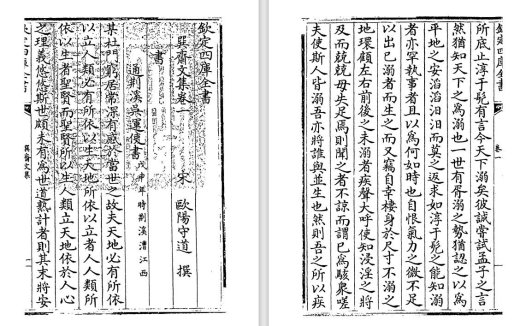 欽定四庫全書
巽齋文集卷一
宋 歐陽守道 撰
書
通荆溪吳運使書 戊申年時荆溪漕江西
某杜門窮居常深有感於當世之故夫天地必有所依
以立人類必有所依以生天地所依以立者人人類所
依以生者聖賢而聖賢所以生人類立天地依於人心
之理義悠悠斯世頗未有為世道熟計者則其末將安
欽定四庫全書 巽齋文集
欽定四庫全書 卷一
所底止淳于髡有言今天下溺矣彼誠嘗試孟子之言
然猶知天下之為溺也一世有胥溺之勢猶認之以為
平地之安滔滔汨汨而莫之返求如淳于髡之能知溺
者亦罕執事者且以為何如時也自恨氣力之微不足
以出已溺者而生之而又竊自幸棲身於尺寸不溺之
地環顧左右前後之未溺者疾聲大呼使知浸淫之將
及而兢兢毋失足焉則聞之者不諒而謂已為駭衆嗟
夫使斯人皆溺吾亦將誰與並生也然則吾之所以疾